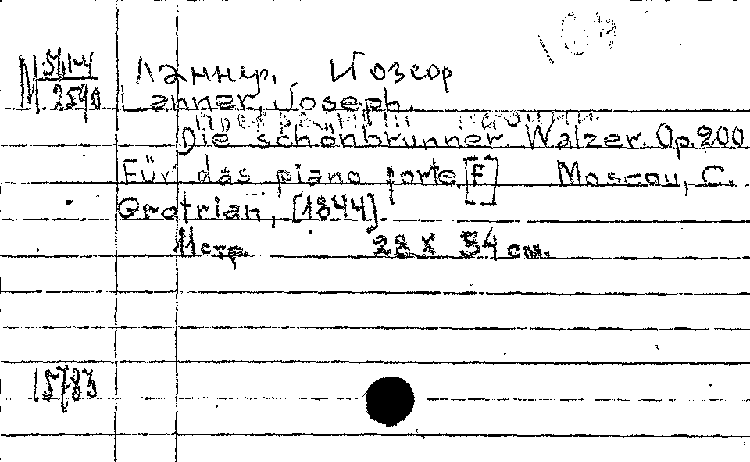 М 5614
2590
Ланнер, Йозеф
Lanner, Joseph.
Die schönbrunner. Walzer. Op. 200
Für das piano forte [F] Moscou, C.
Grotrian, [1844].
11 стр. 28 x 34 см.
15783